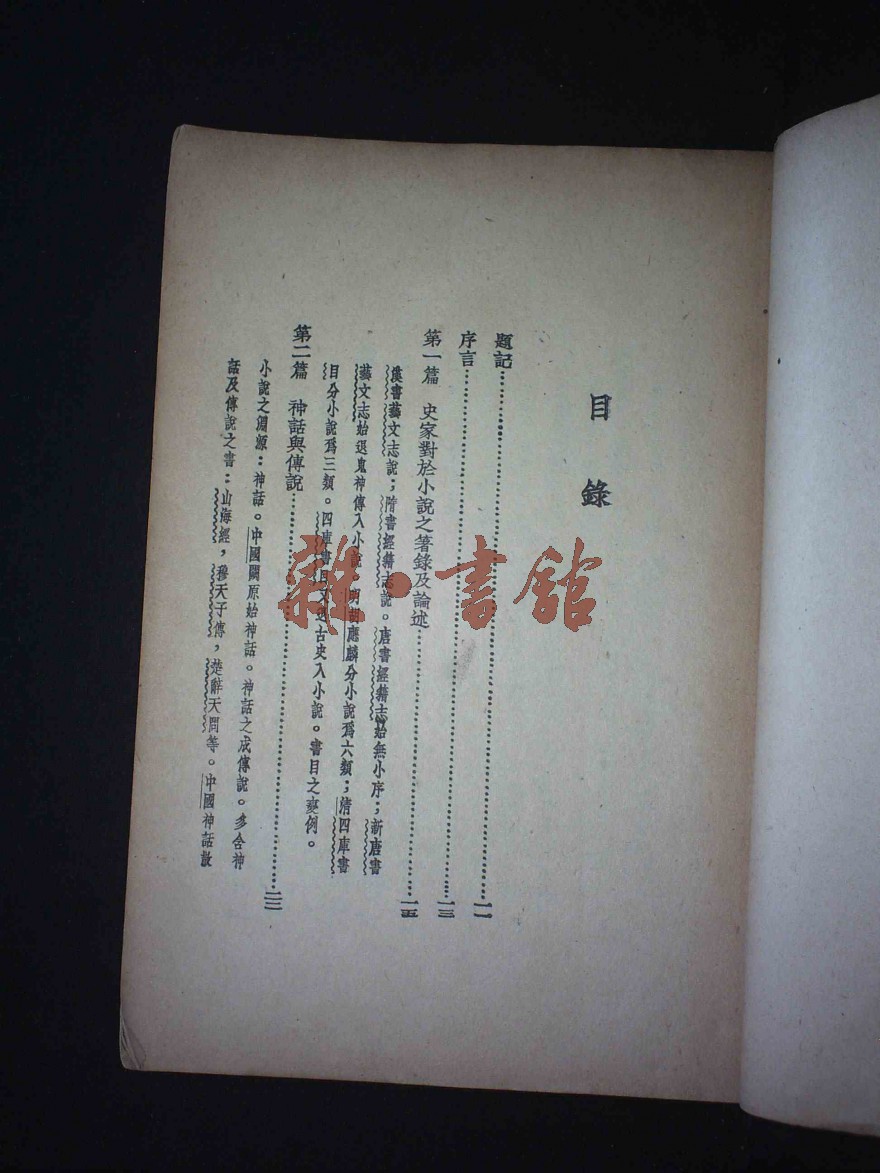 目錄
題記……………………一一
序言……………………一三
第一篇 史家對於小說之著錄及論述……………………一五
漢書藝文志說；隋書經籍志說。唐書經籍志始無小序；新唐書
藝文志始退鬼神傳入小說。明胡應麟分小說爲六類；清四庫書
目分小說爲三類。四庫書目又退古史入小說。書目之變例。
第二篇 神話與傳說……………………二三
小說之淵源：神話。中國闕原始神話。神話之成傳說。多含神
話及傳說之書：山海經，穆天子傳，楚辭天問等。中國神話散
雜·書館